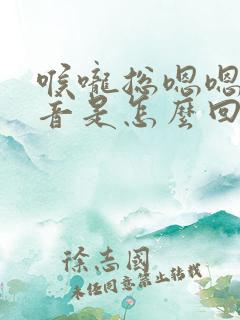 喉嚨總嗯嗯
音是怎麼回
徐志國
未经同意禁止转载